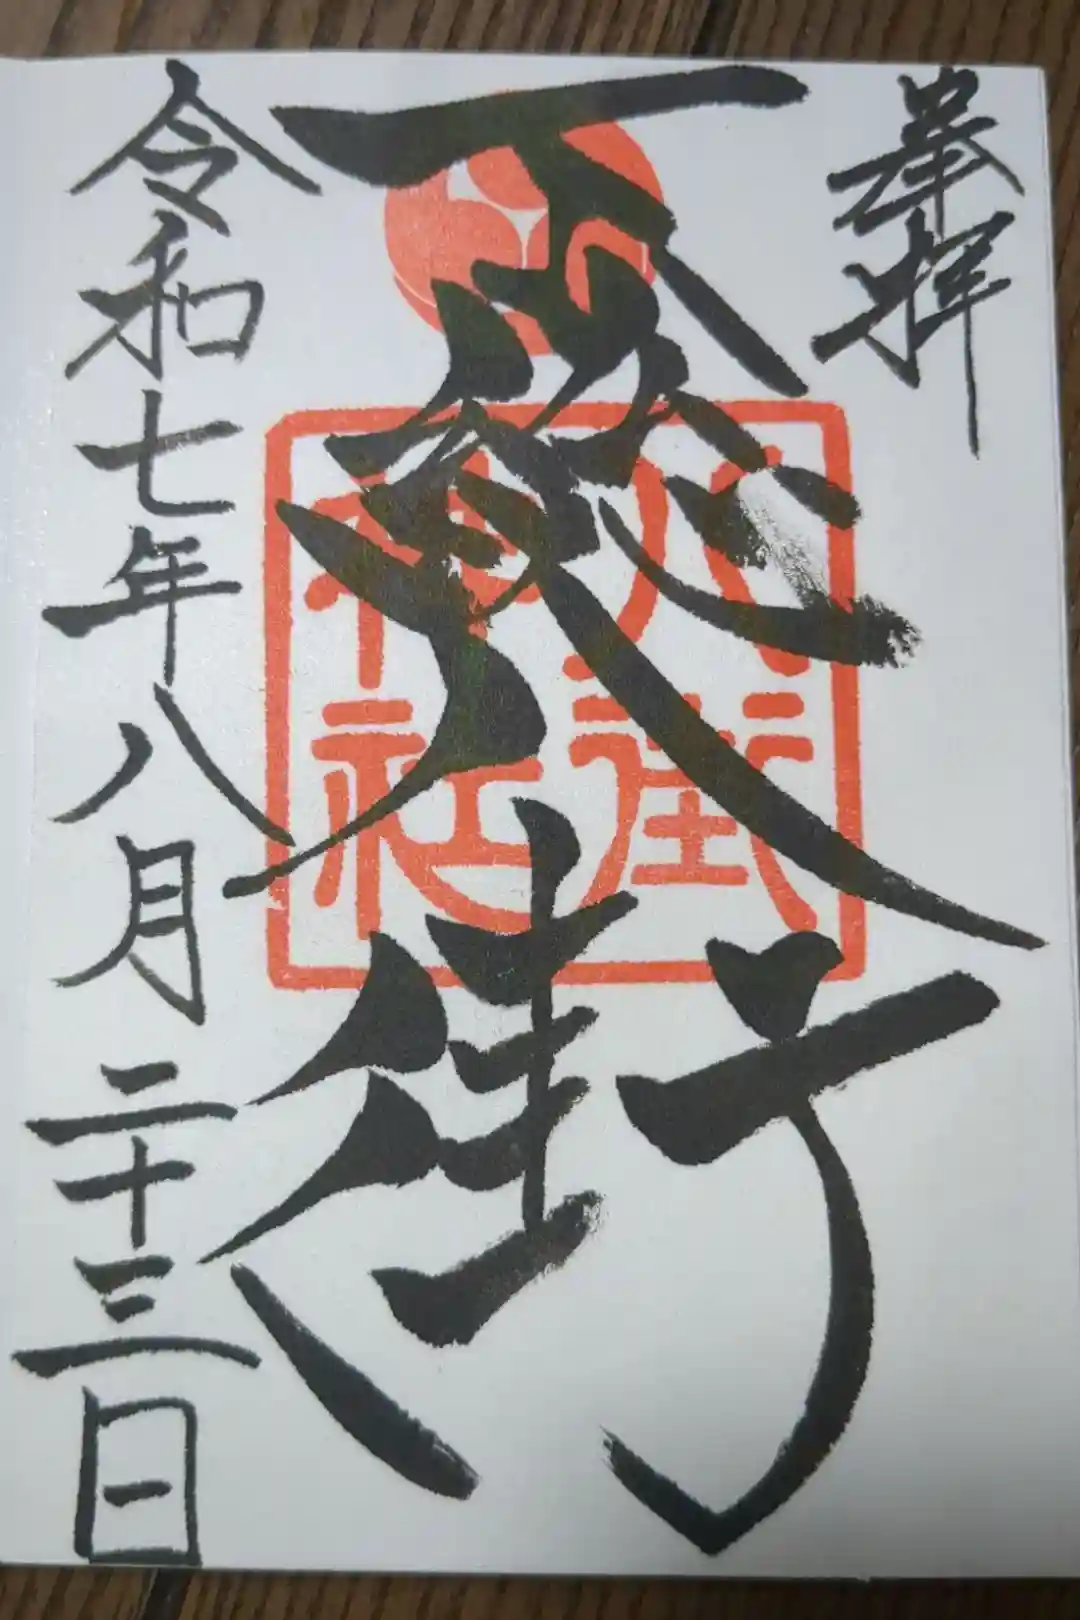 奉拝
下総八街
八街
神社
令和七年八月二十三日